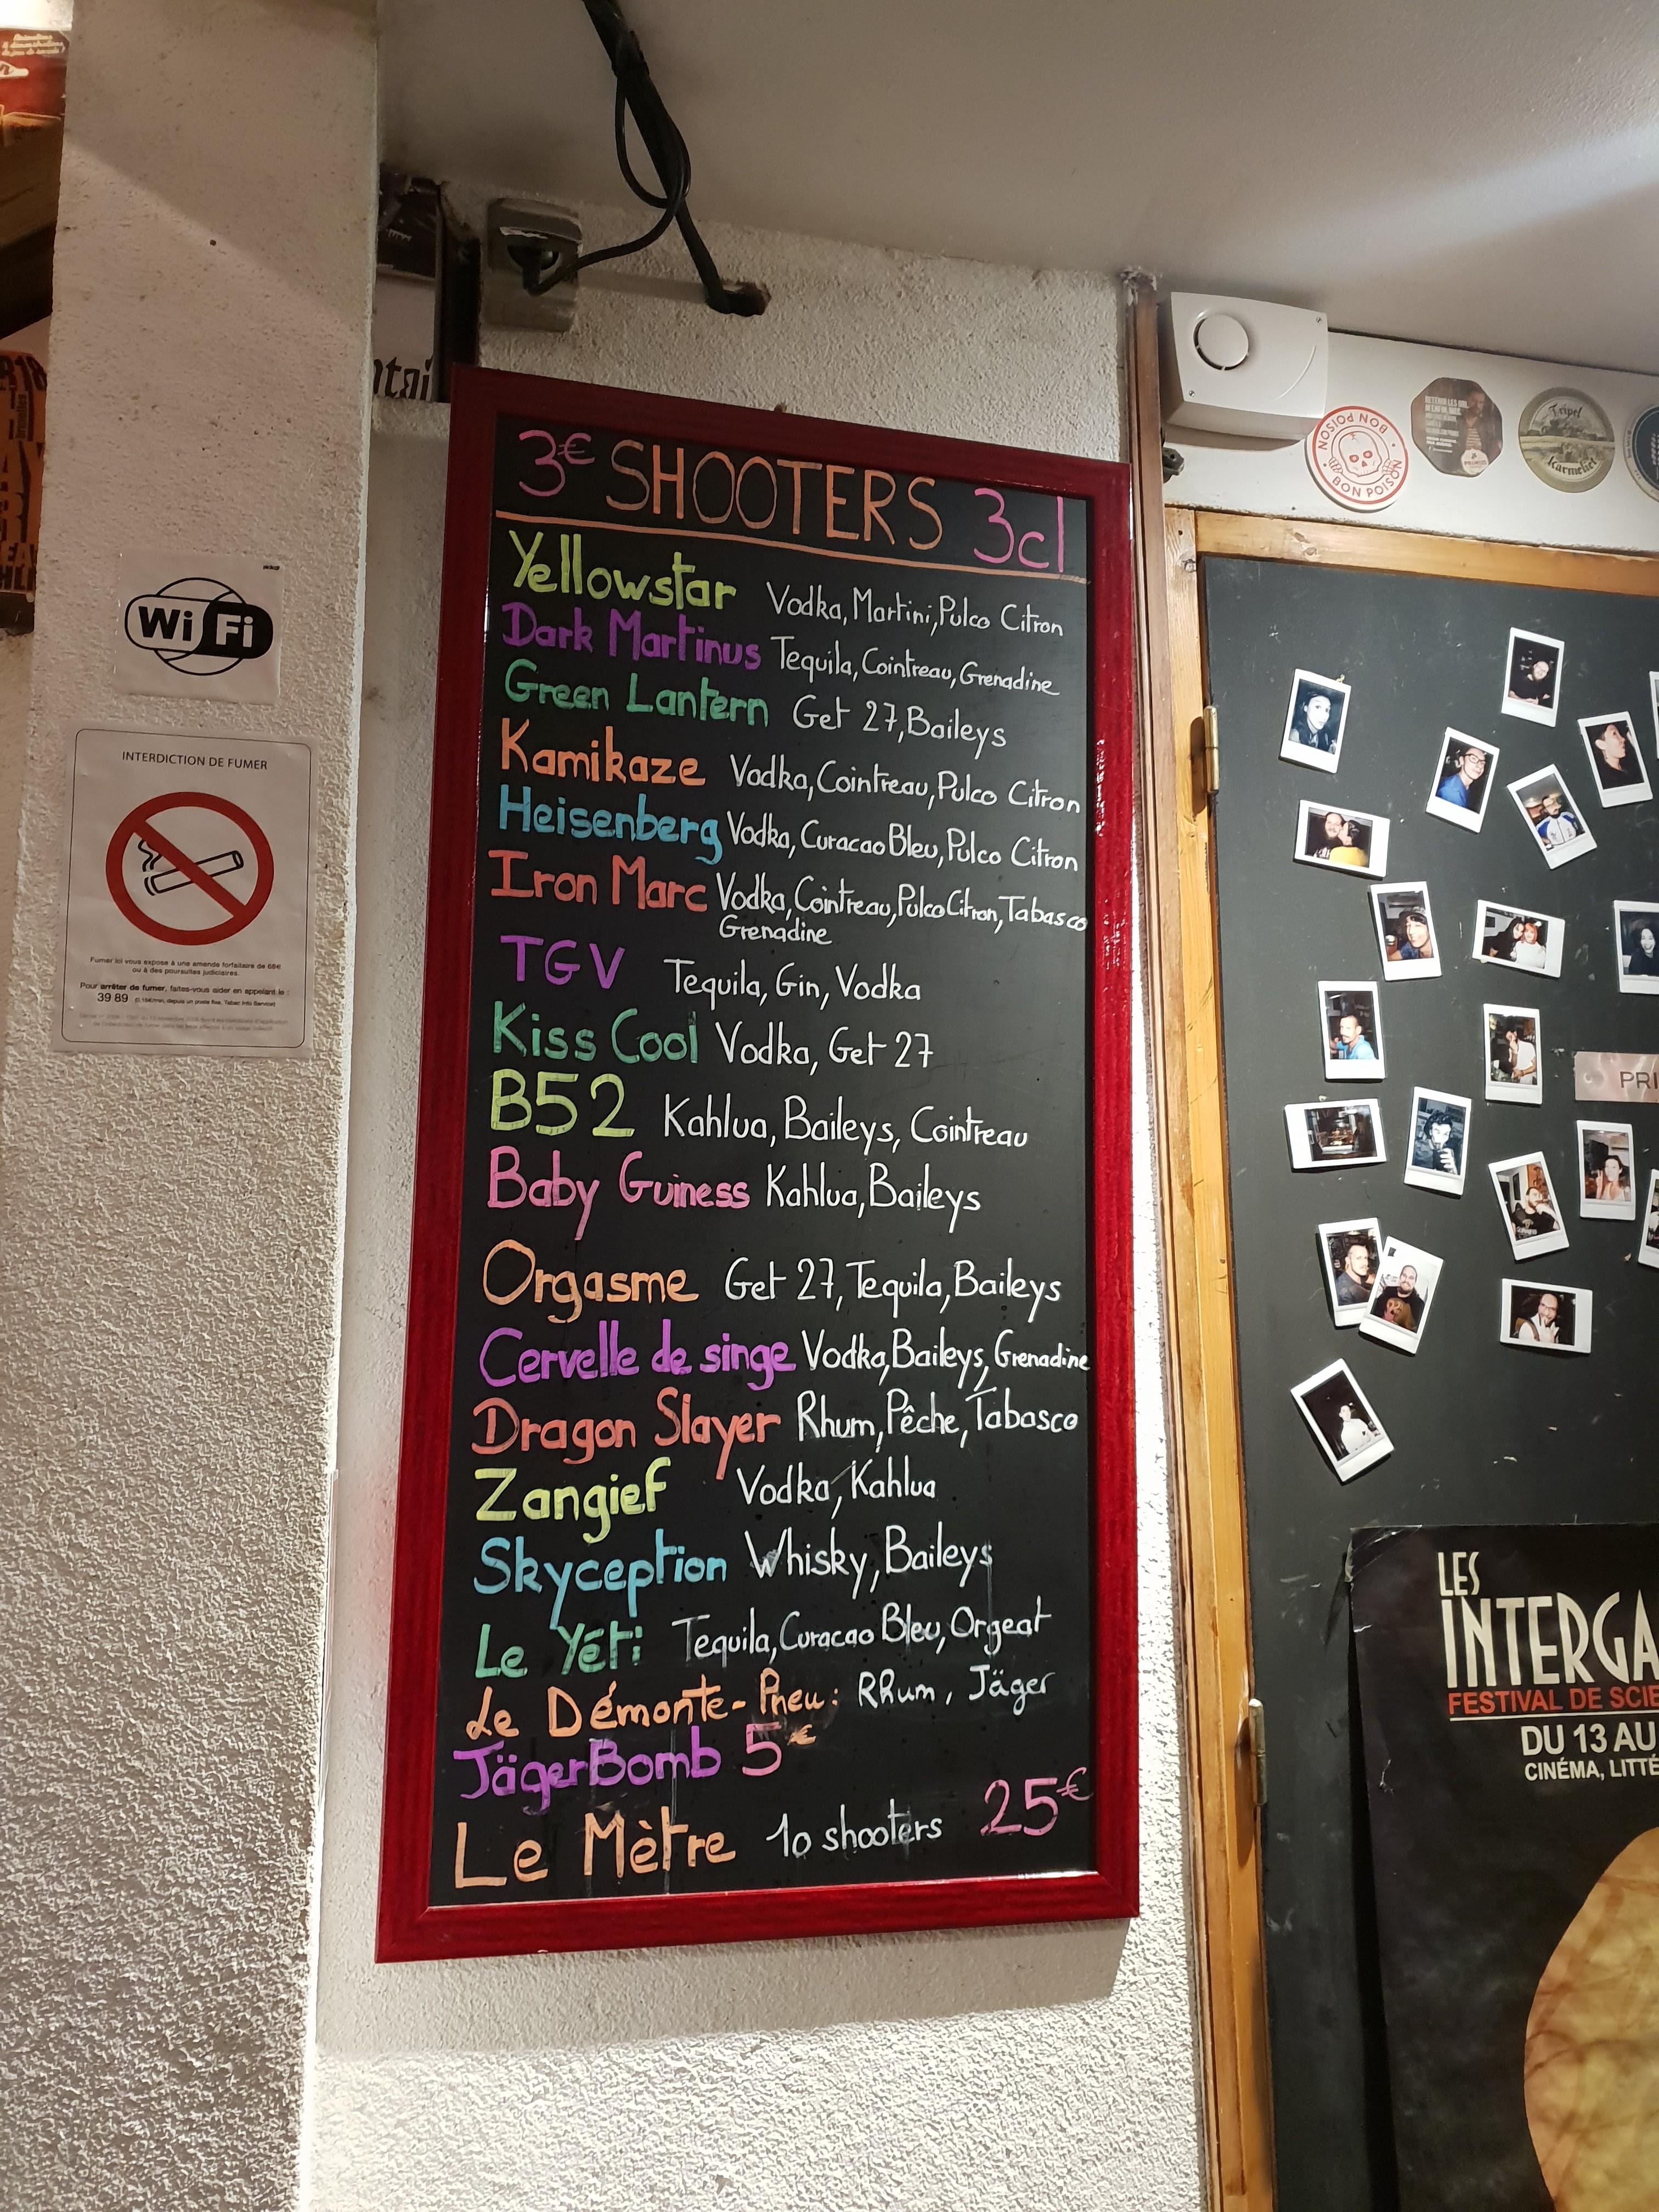 Wi Fi
INTERDICTION DE FUMER
Fumer ici vous expose à une amende forfaitaire de 68€
ou à des poursuites judiciaires.
Pour arrêter de fumer, faites-vous aider en appelant le :
39 89 (0,15€/min, depuis un poste fixe, Tabac Info Service)
ntai
3€ SHOOTERS 3cl
Yellowstar Vodka, Martini, Pulco Citron
Dark Martinus Tequila, Cointreau, Grenadine
Green Lantern Get 27, Baileys
Kamikaze Vodka, Cointreau, Pulco Citron
Heisenberg Vodka, Curacao Bleu, Pulco Citron
Iron Marc Vodka, Cointreau, Pulco Citron, Tabasco
Grenadine
TGV Tequila, Gin, Vodka
Kiss Cool Vodka, Get 27
B52 Kahlua, Baileys, Cointreau
Baby Guiness Kahlua, Baileys
Orgasme Get 27, Tequila, Baileys
Cervelle de singe Vodka, Baileys, Grenadine
Dragon Slayer Rhum, Pêche, Tabasco
Zangief Vodka, Kahlua
Skyception Whisky, Baileys
Le Yéti Tequila, Curacao Bleu, Orgeat
Le Démonte-Pneu: Rhum, Jäger
JägerBomb 5€
Le Mètre 10 shooters 25€
BON POISON
BON POISON
Tripel
Karmeliet
PRI
LES
INTERGA
FESTIVAL DE SCIE
DU 13 AU
CINÉMA, LITTÉ